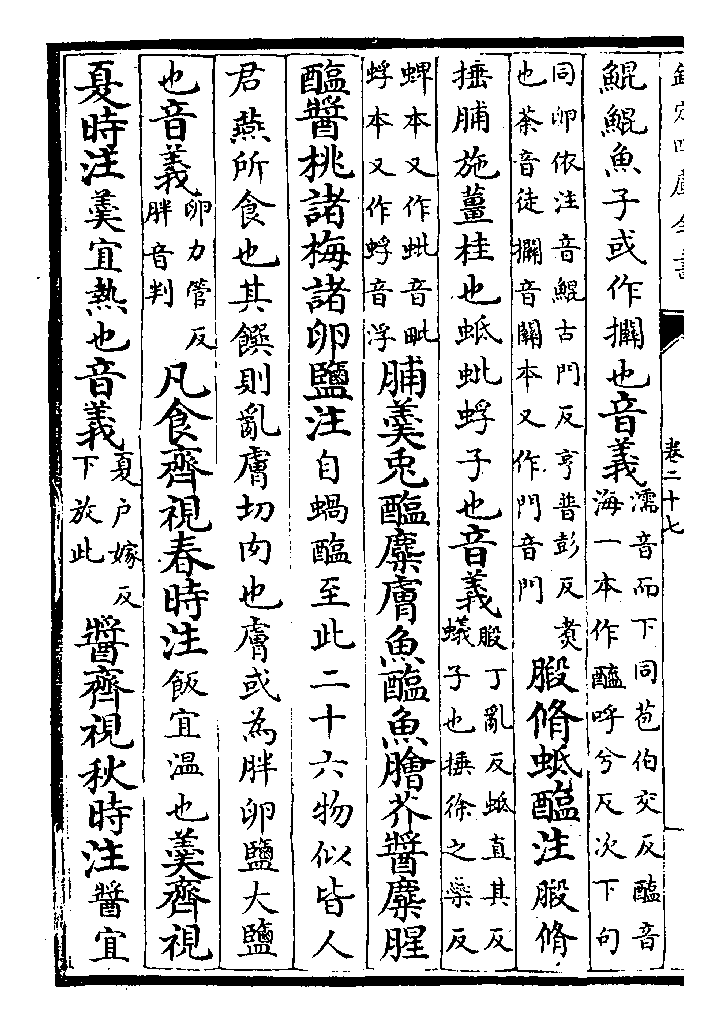 欽定四庫全書
卷二十七
鯤鯤魚子或作攔也音義
濡音而下同苞伯交反醢音
海一本作醯呼兮反次下句
同卵依注音鯤古門反亨普彭反煑
也荼音徒攔音關本又作門音門
腶脩蚳醢注腶脩
捶脯施薑桂也蚳蚍蜉子也音義
腶丁亂反蚳直其反
蟻子也捶徐之藥反
蜱本又作蚍音毗
蜉本又作蜉音浮
脯羹兎醢麋膚魚醢魚膾芥醬麋腥
醢醬桃諸梅諸卵鹽注自蝸醢至此二十六物似皆人
君燕所食也其饌則亂膚切肉也膚或為胖卵鹽大鹽
也音義
卵力管反
胖音判
凡食齊視春時注飯宜温也羹齊視
夏時注羹宜熱也音義
夏户嫁反
下放此
醬齊視秋時注醬宜